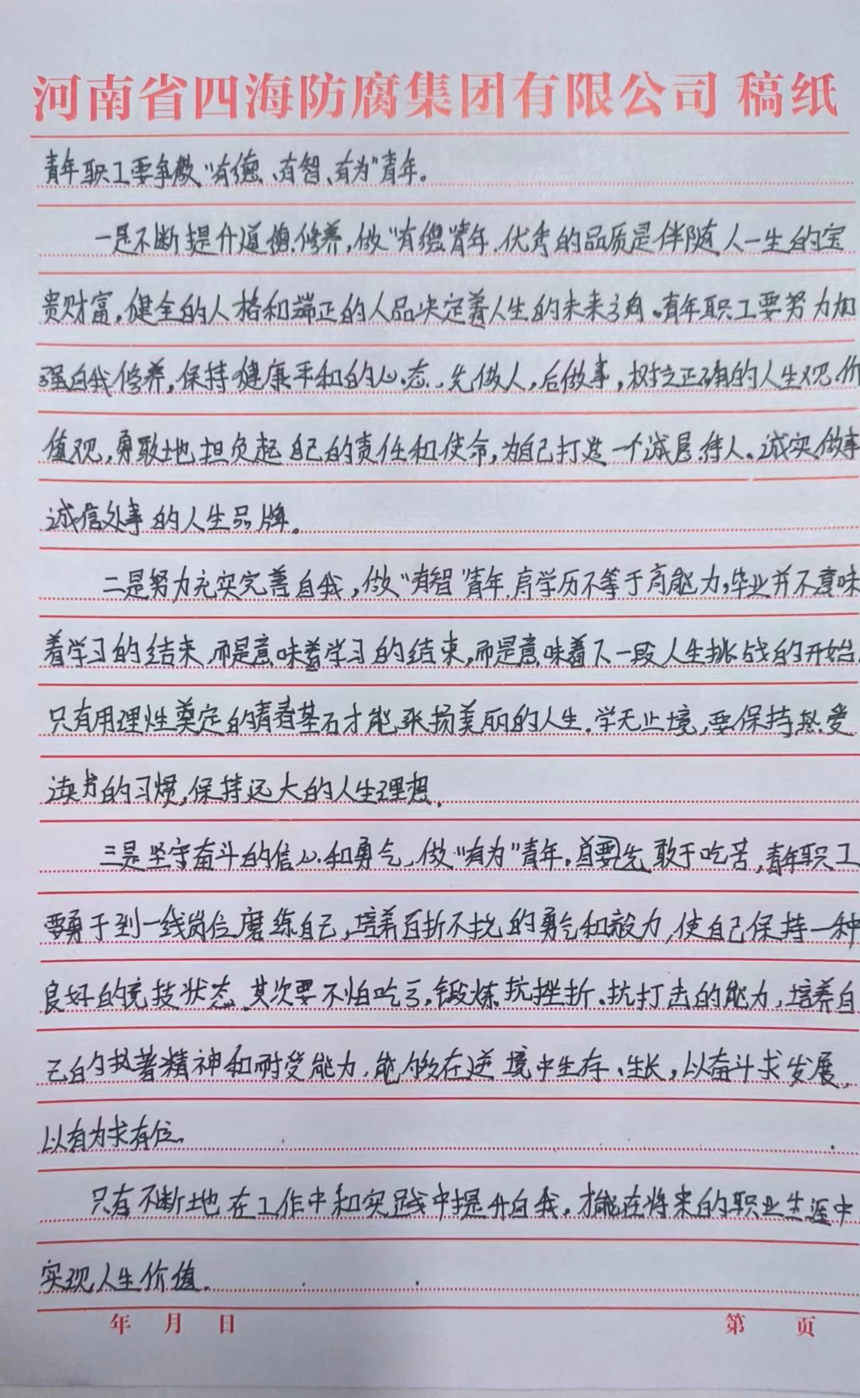 河南省四海防腐集团有限公司 稿纸
青年职工要争做“有德、有智、有为”青年。
一是不断提升道德修养,做“有德”青年,优秀的品质是伴随人一生的宝
贵财富,健全的人格和端正的人品决定着人生的未来方向。青年职工要努力加
强自我修养,保持健康平和的心态,先做人,后做事,树立正确的人生观价
值观,勇敢地担负起自己的责任和使命,为自己打造一个诚恳待人、诚实做事
诚信处事的人生品牌。
二是努力充实完善自我,做“有智”青年,高学历不等于高能力,毕业并不意味
着学习的结束,而是意味着学习的结束,而是意味着下一段人生挑战的开始,
只有用理性奠定的青春基石才能张扬美丽的人生。学无止境,要保持热爱
读书的习惯,保持远大的人生理想。
三是坚守奋斗的信心和勇气,做“有为”青年,首要先敢于吃苦,青年职工
要勇于到一线岗位磨练自己,培养百折不挠的勇气和毅力,使自己保持一种
良好的竞技状态,其次要不怕吃亏,锻炼抗挫折、抗打击的能力,培养自
己的执著精神和耐受能力,能够在逆境中生存、生长,以奋斗求发展,
以有为求有位。
只有不断地在工作中和实践中提升自我,才能在将来的职业生涯中
实现人生价值。
年 月 日 第 页